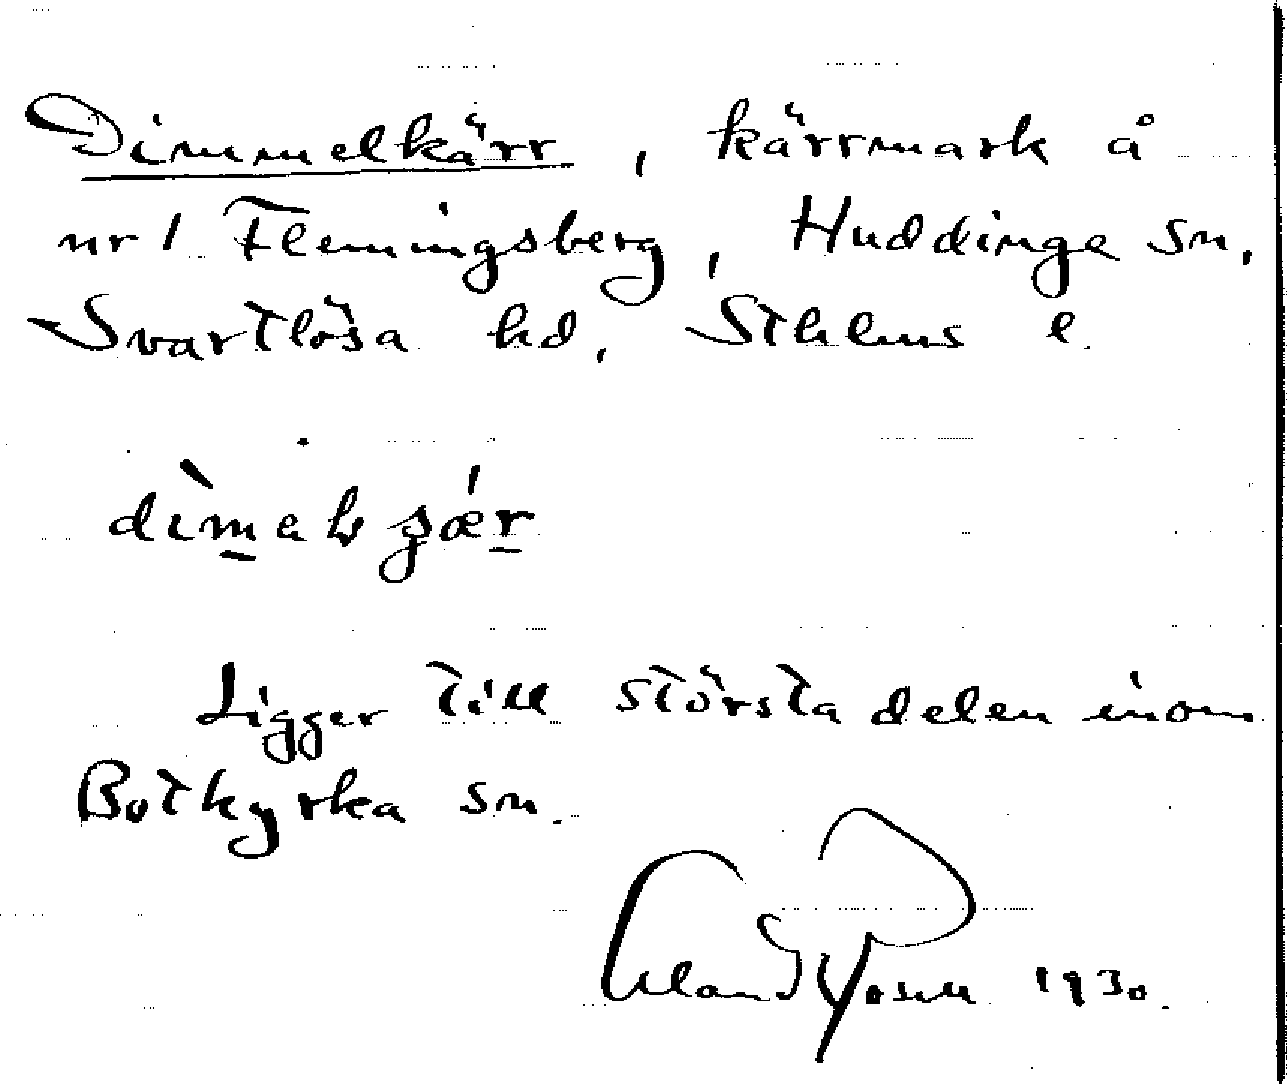 Dimmelkärr, kärrmark å
nr 1 Flemingsberg, Huddinge sn,
Svartlösa hd, Sthlms l.
Ligger till största delen inom
Botkyrka sn.
1930.